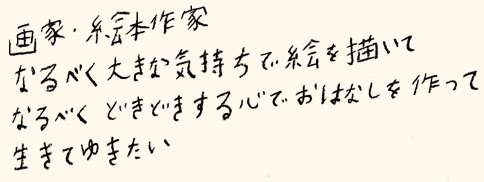 画家・絵本作家
なるべく大きな気持ちで絵を描いて
なるべくどきどきする心でおはなしを作って
生きてゆきたい